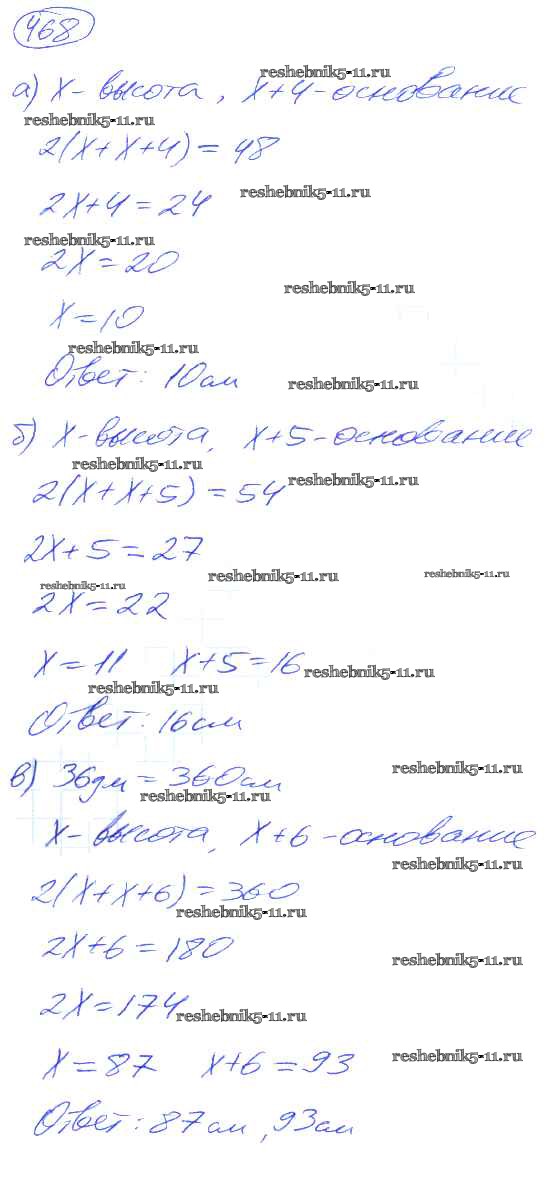 468
reshebnik5-11.ru
а) x - высота, x+4 - основание
reshebnik5-11.ru
2(x+x+4) = 48
reshebnik5-11.ru
2x+4 = 24
reshebnik5-11.ru
2x = 20
reshebnik5-11.ru
x = 10
reshebnik5-11.ru
Ответ: 10 см
reshebnik5-11.ru
б) x - высота, x+5 - основание
reshebnik5-11.ru
reshebnik5-11.ru
2(x+x+5) = 54
2x+5 = 27
reshebnik5-11.ru
reshebnik5-11.ru
reshebnik5-11.ru
2x = 22
x = 11 x+5 = 16
reshebnik5-11.ru
reshebnik5-11.ru
Ответ: 16 см
reshebnik5-11.ru
в) 36 дм = 360 см
reshebnik5-11.ru
x - высота, x+6 - основание
reshebnik5-11.ru
2(x+x+6) = 360
reshebnik5-11.ru
2x+6 = 180
reshebnik5-11.ru
2x = 174
reshebnik5-11.ru
reshebnik5-11.ru
x = 87 x+6 = 93
Ответ: 87 см, 93 см